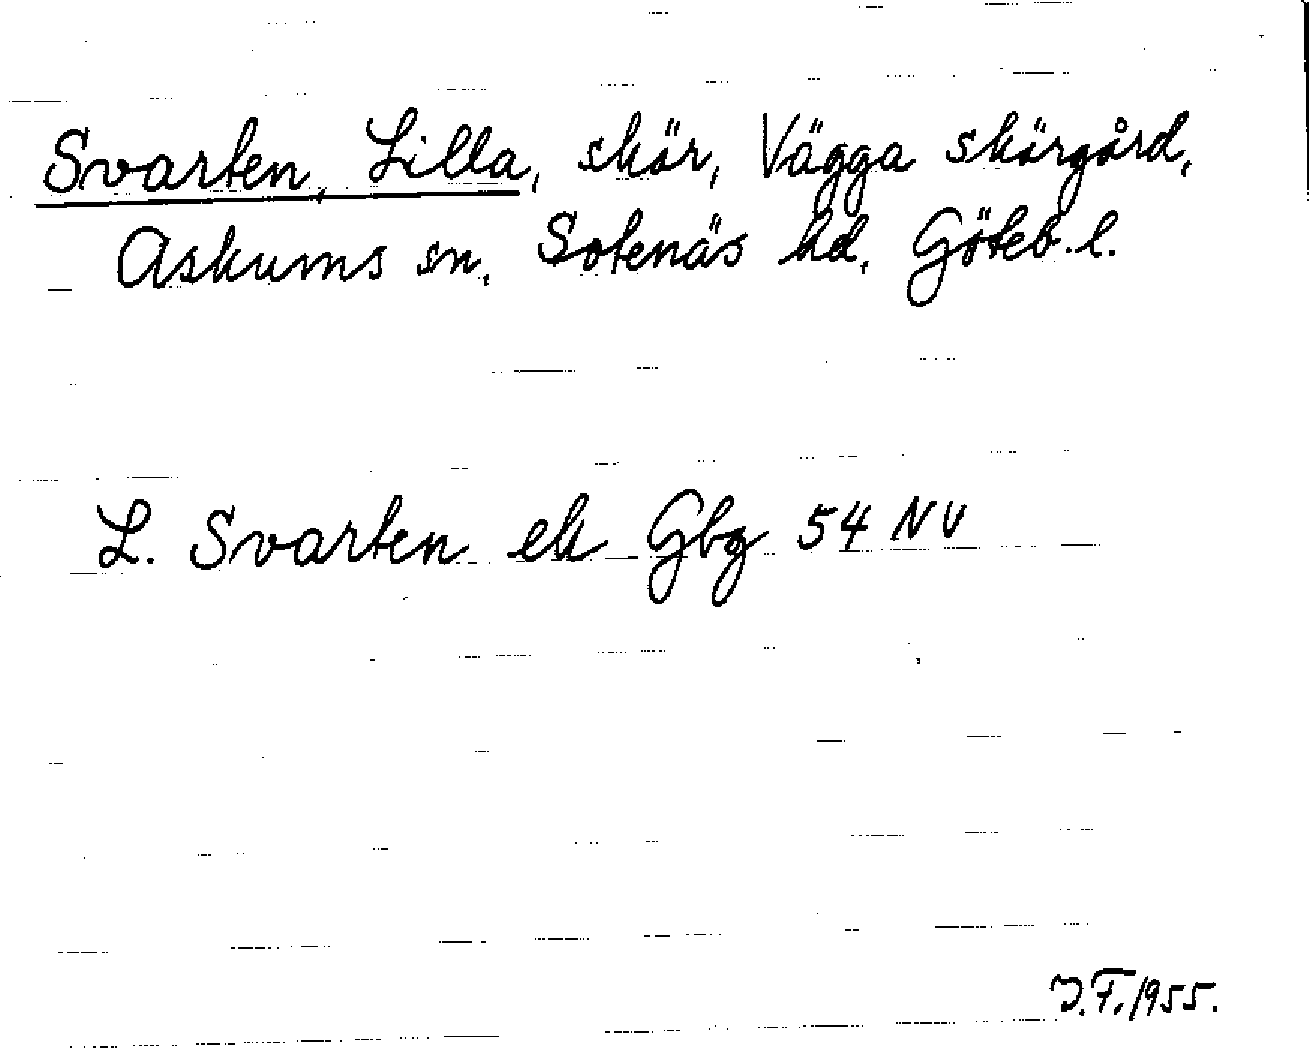 Svarten, Lilla, skär, Vägga skärgård,
Askums sn, Sotenäs hd, Göteb. l.
L. Svarten ek Gbg 54 NV
J.F. 1955.